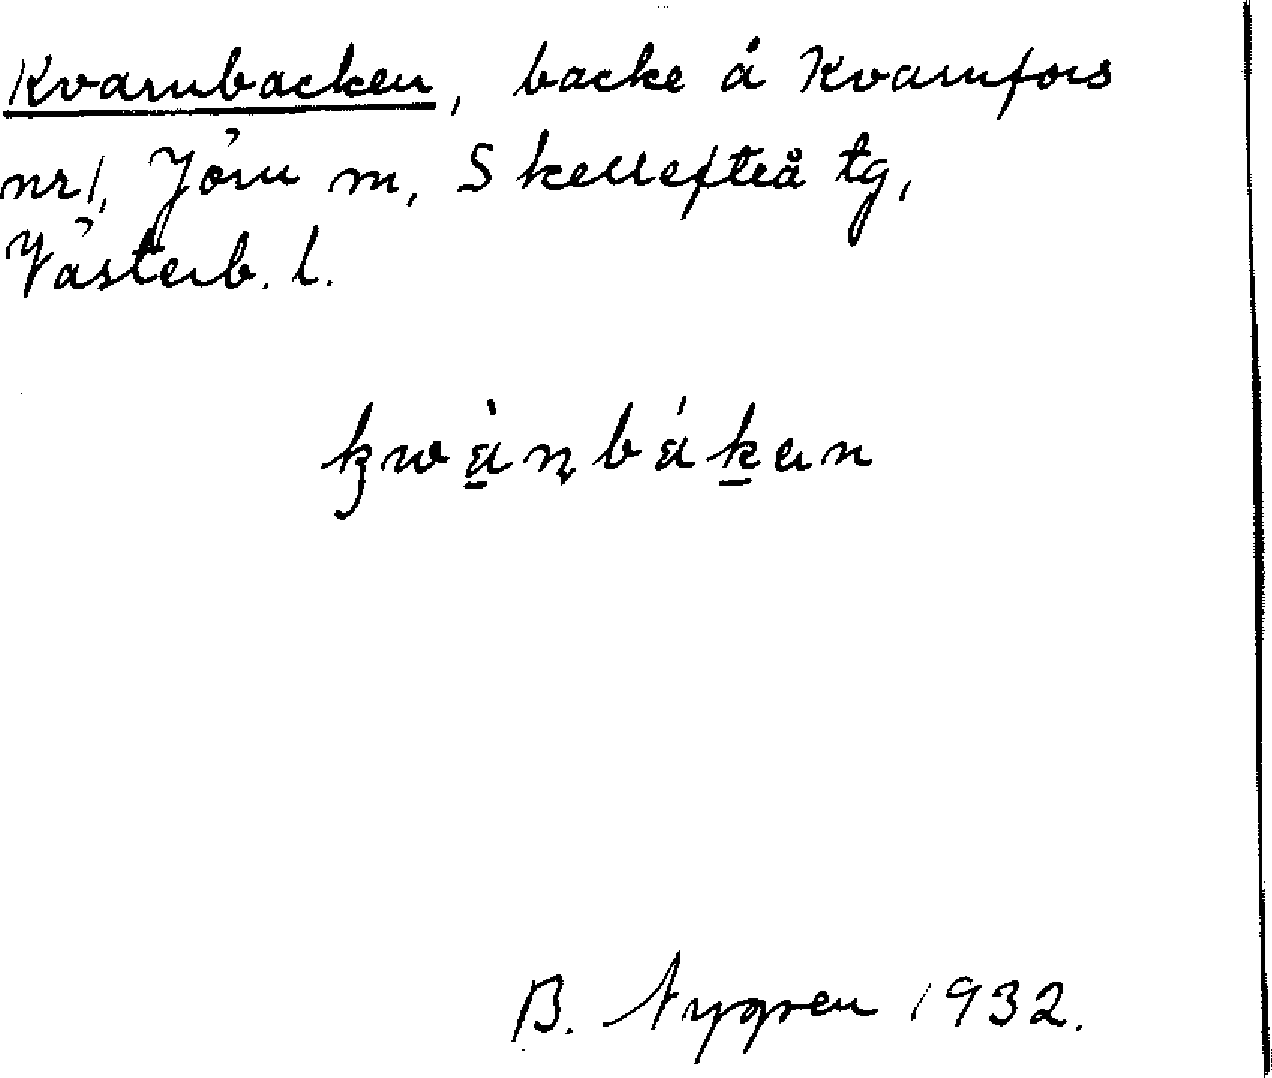 Kvarnbacken, backe å Kvarnfors
nr 1, Jörn m, Skellefteå tg,
Västerb. l.
B. Nygren 1932.